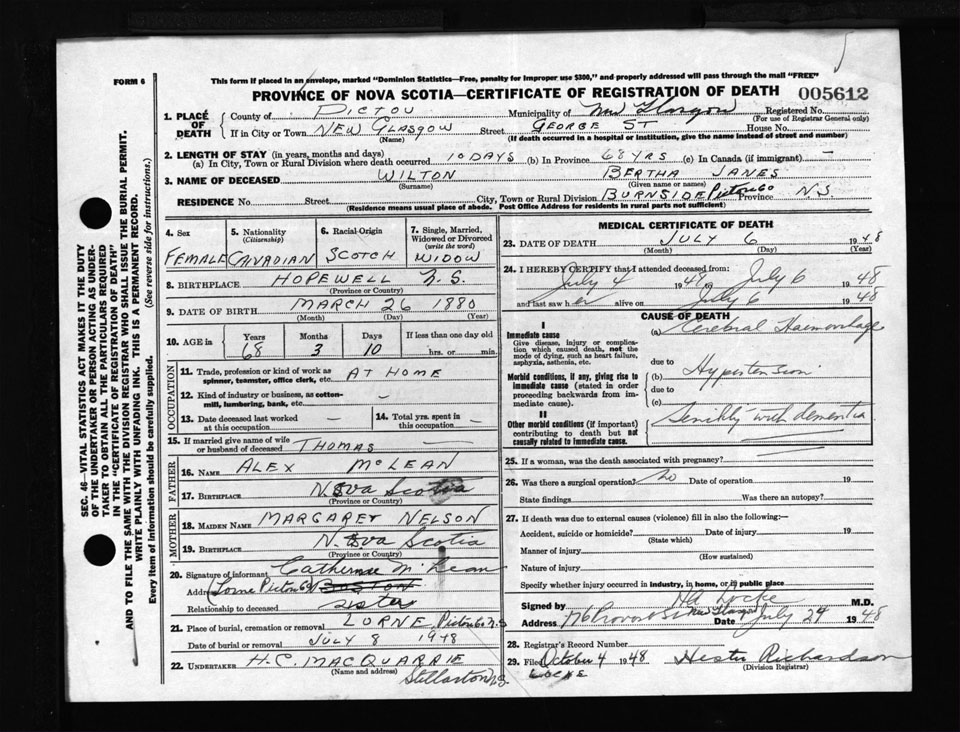 This form if placed in an envelope, marked "Dominion Statistics—Free, penalty for improper use $300," and properly addressed will pass through the mail "FREE"
FORM 6
PROVINCE OF NOVA SCOTIA—CERTIFICATE OF REGISTRATION OF DEATH 005612
1. PLACE OF DEATH
County of PICTOU Municipality of New Glasgow Registered No.
(For use of Registrar General only)
If in City or Town NEW GLASGOW Street GEORGE ST. House No.
(Name) (If death occurred in a hospital or institution, give the name instead of street and number)
2. LENGTH OF STAY (in years, months and days)
(a) In City, Town or Rural Division where death occurred 10 DAYS (b) In Province 68 YRS (c) In Canada (if immigrant) —
3. NAME OF DECEASED WILTON BERTHA JANES
(Surname) (Given name or names)
RESIDENCE No. Street City, Town or Rural Division BURNSIDE Pictou Co Province N.S.
(Residence means usual place of abode. Post Office Address for residents in rural parts not sufficient)
4. Sex FEMALE
5. Nationality (Citizenship) CANADIAN
6. Racial Origin SCOTCH
7. Single, Married, Widowed or Divorced (write the word) WIDOW
8. BIRTHPLACE HOPEWELL N.S.
(Province or Country)
9. DATE OF BIRTH MARCH 26 1880
(Month) (Day) (Year)
10. AGE in Years 68 Months 3 Days 10 If less than one day old hrs. or min.
OCCUPATION
11. Trade, profession or kind of work as spinner, teamster, office clerk, etc. AT HOME
12. Kind of industry or business, as cotton-mill, lumbering, bank, etc. —
13. Date deceased last worked at this occupation —
14. Total yrs. spent in this occupation —
15. If married give name of wife or husband of deceased THOMAS
FATHER
16. NAME ALEX McLEAN
17. BIRTHPLACE NOVA SCOTIA
(Province or Country)
MOTHER
18. MAIDEN NAME MARGARET NELSON
19. BIRTHPLACE NOVA SCOTIA
(Province or Country)
20. Signature of informant Catherine McLean
Address (Lorne Pictou Co) BOSTON
Relationship to deceased sister
21. Place of burial, cremation or removal LORNE, Pictou Co N.S
Date of burial or removal JULY 8 1948
22. UNDERTAKER H.C. MACQUARRIE
(Name and address)
Stellarton N.S.
MEDICAL CERTIFICATE OF DEATH
23. DATE OF DEATH JULY 6 1948
(Month) (Day)
24. I HEREBY CERTIFY that I attended deceased from:
July 4 1948 to July 6 1948
and last saw her alive on July 6 1948
CAUSE OF DEATH
I
Immediate cause
Give disease, injury or complication which caused death, not the mode of dying, such as heart failure, asphyxia, asthenia, etc.
(a) Cerebral Haemorrhage
due to
Morbid conditions, if any, giving rise to immediate cause (stated in order proceeding backwards from immediate cause).
(b) Hypertension
due to
(c)
II
Other morbid conditions (if important) contributing to death but not causally related to immediate cause.
Senility with dementia
25. If a woman, was the death associated with pregnancy?
26. Was there a surgical operation? No Date of operation 19
State findings Was there an autopsy?
27. If death was due to external causes (violence) fill in also the following:—
Accident, suicide or homicide? Date of injury 19
(State which)
Manner of injury
(How sustained)
Nature of injury
Specify whether injury occurred in industry, in home, or in public place
Signed by HA Locke M.D.
Address 176 Provost St New Glasgow Date July 29 1948
28. Registrar's Record Number
29. Filed October 4 1948 Hester Richardson
LOCKE (Division Registrar)
SEC. 46—VITAL STATISTICS ACT MAKES IT THE DUTY OF THE UNDERTAKER OR PERSON ACTING AS UNDERTAKER TO OBTAIN ALL THE PARTICULARS REQUIRED IN THE "CERTIFICATE OF REGISTRATION OF DEATH" AND TO FILE THE SAME WITH THE DIVISION REGISTRAR WHO SHALL ISSUE THE BURIAL PERMIT.
WRITE PLAINLY WITH UNFADING INK. THIS IS A PERMANENT RECORD.
Every item of information should be carefully supplied. (See reverse side for instructions.)